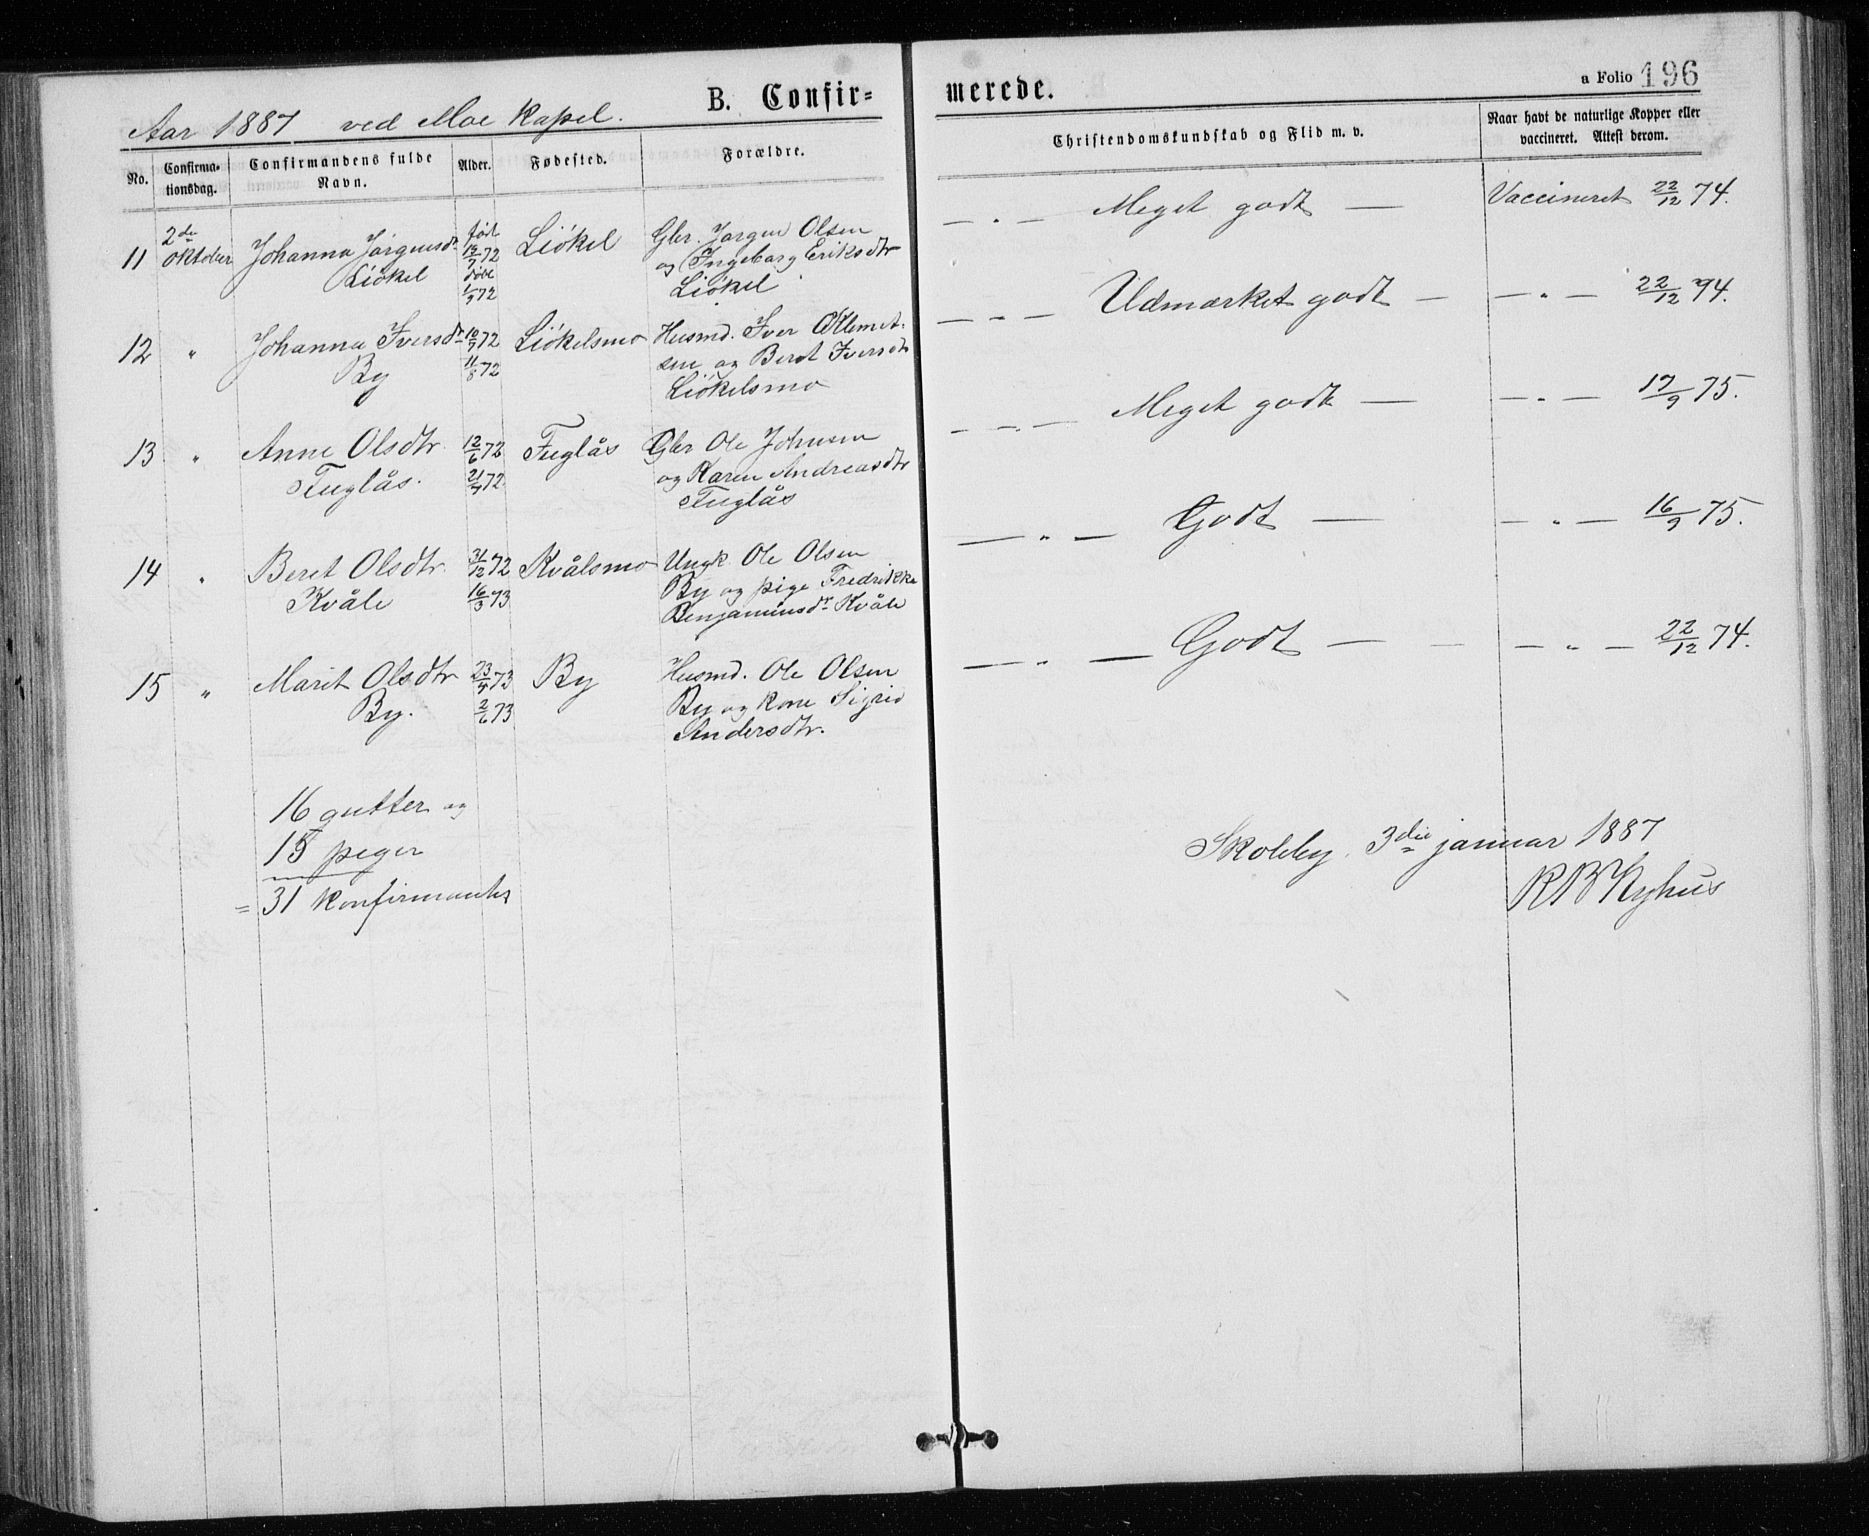 B. Confir=
Aar 1887 ved Moe Kapel.
No.
Confirma-
tionsdag.
Confirmandens fulde
Navn.
Alder.
Fødested.
Forældre.
11
2de
oktober
Johanna Jørgensdr
Liøkel
født
13/7 72
døbt
1/9 72
Liøkel
Gbr. Jørgen Olsen
og Ingeborg Eriksdtr
Liøkel
12 "
Johanna Iversdr
By
10/7 72
11/8 72
Liøkelsmo
Husmd. Iver Klemet-
sen og Beret Iversdtr
Liøkelsmo
13 "
Anne Olsdtr.
Fuglås.
12/6 72
21/7 72
Fuglås
Gbr Ole Johnsen
og Karen Andreasdtr
Fuglås
14 "
Beret Olsdtr.
Kvåle
31/12 72
16/3 73
Kvålsmo
Ungk. Ole Olsen
By og pige Fredrikke
Benjaminsdr Kvåle
15 "
Marit Olsdtr
By.
23/4 73
2/6 73
By
Husmd. Ole Olsen
By og kone Sigrid
Andersdtr.
16 gutter og
15 piger
= 31 konfirmanter
merede.
a Folio 196
Christendomskundskab og Flid m. v.
Naar havt de naturlige Kopper eller
vaccineret. Attest derom.
— " — Meget godt — Vaccineret 22/12 74.
— " — Udmærket godt — — " — 22/12 94.
— " — Meget godt — — " — 17/9 75.
— " — Godt — — " — 16/9 75.
— " — Godt — — — " — 22/12 74.
Skolby, 3die januar 1887
R B Nyhus